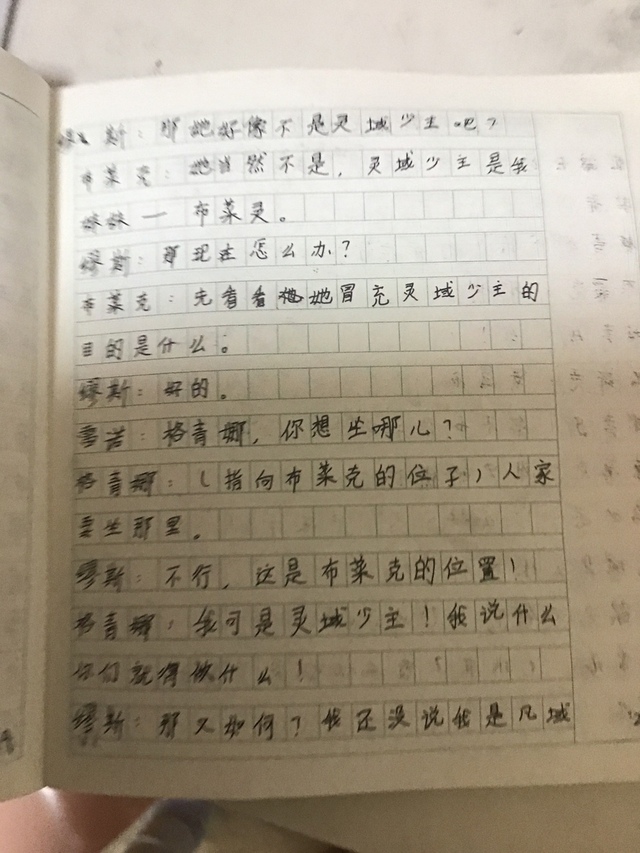 缪斯：那她好像不是灵域少主吧？
布莱克：她当然不是，灵域少主是我
妹妹一布莱灵。
缪斯：那现在怎么办？
布莱克：先看看她冒充灵域少主的
目的是什么。
缪斯：好的。
雪诺：格青娜，你想坐哪儿？
格青娜：（指向布莱克的位子）人家
要坐那里。
缪斯：不行，这是布莱克的位置！
格青娜：我可是灵域少主！我说什么
你们就得做什么！
缪斯：那又如何？我还没说我是凡域